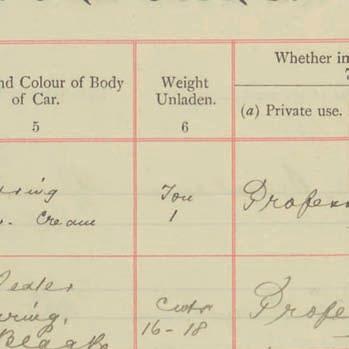 nd Colour of Body
of Car.
5
Weight
Unladen.
6
Whether in
7
(a) Private use.
ring
. Cream
Ton
1
Profess
eater
ring,
Black
Cwts
16-18
Profe